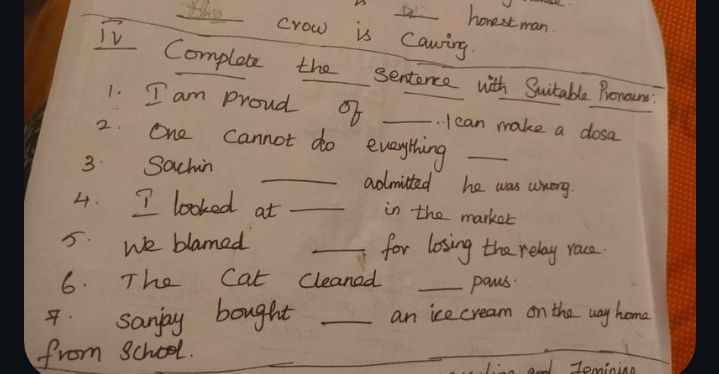 honest man.
crow is Cawing.
IV Complete the sentence with Suitable Pronouns:
1. I am proud of ____. I can make a dosa
2. One cannot do everything ____
3. Sachin ____ admitted he was wrong.
4. I looked at ____ in the market
5. We blamed ____ for losing the relay race.
6. The Cat cleaned ____ paws.
7. Sanjay bought ____ an ice cream on the way home
from School.
and Feminine